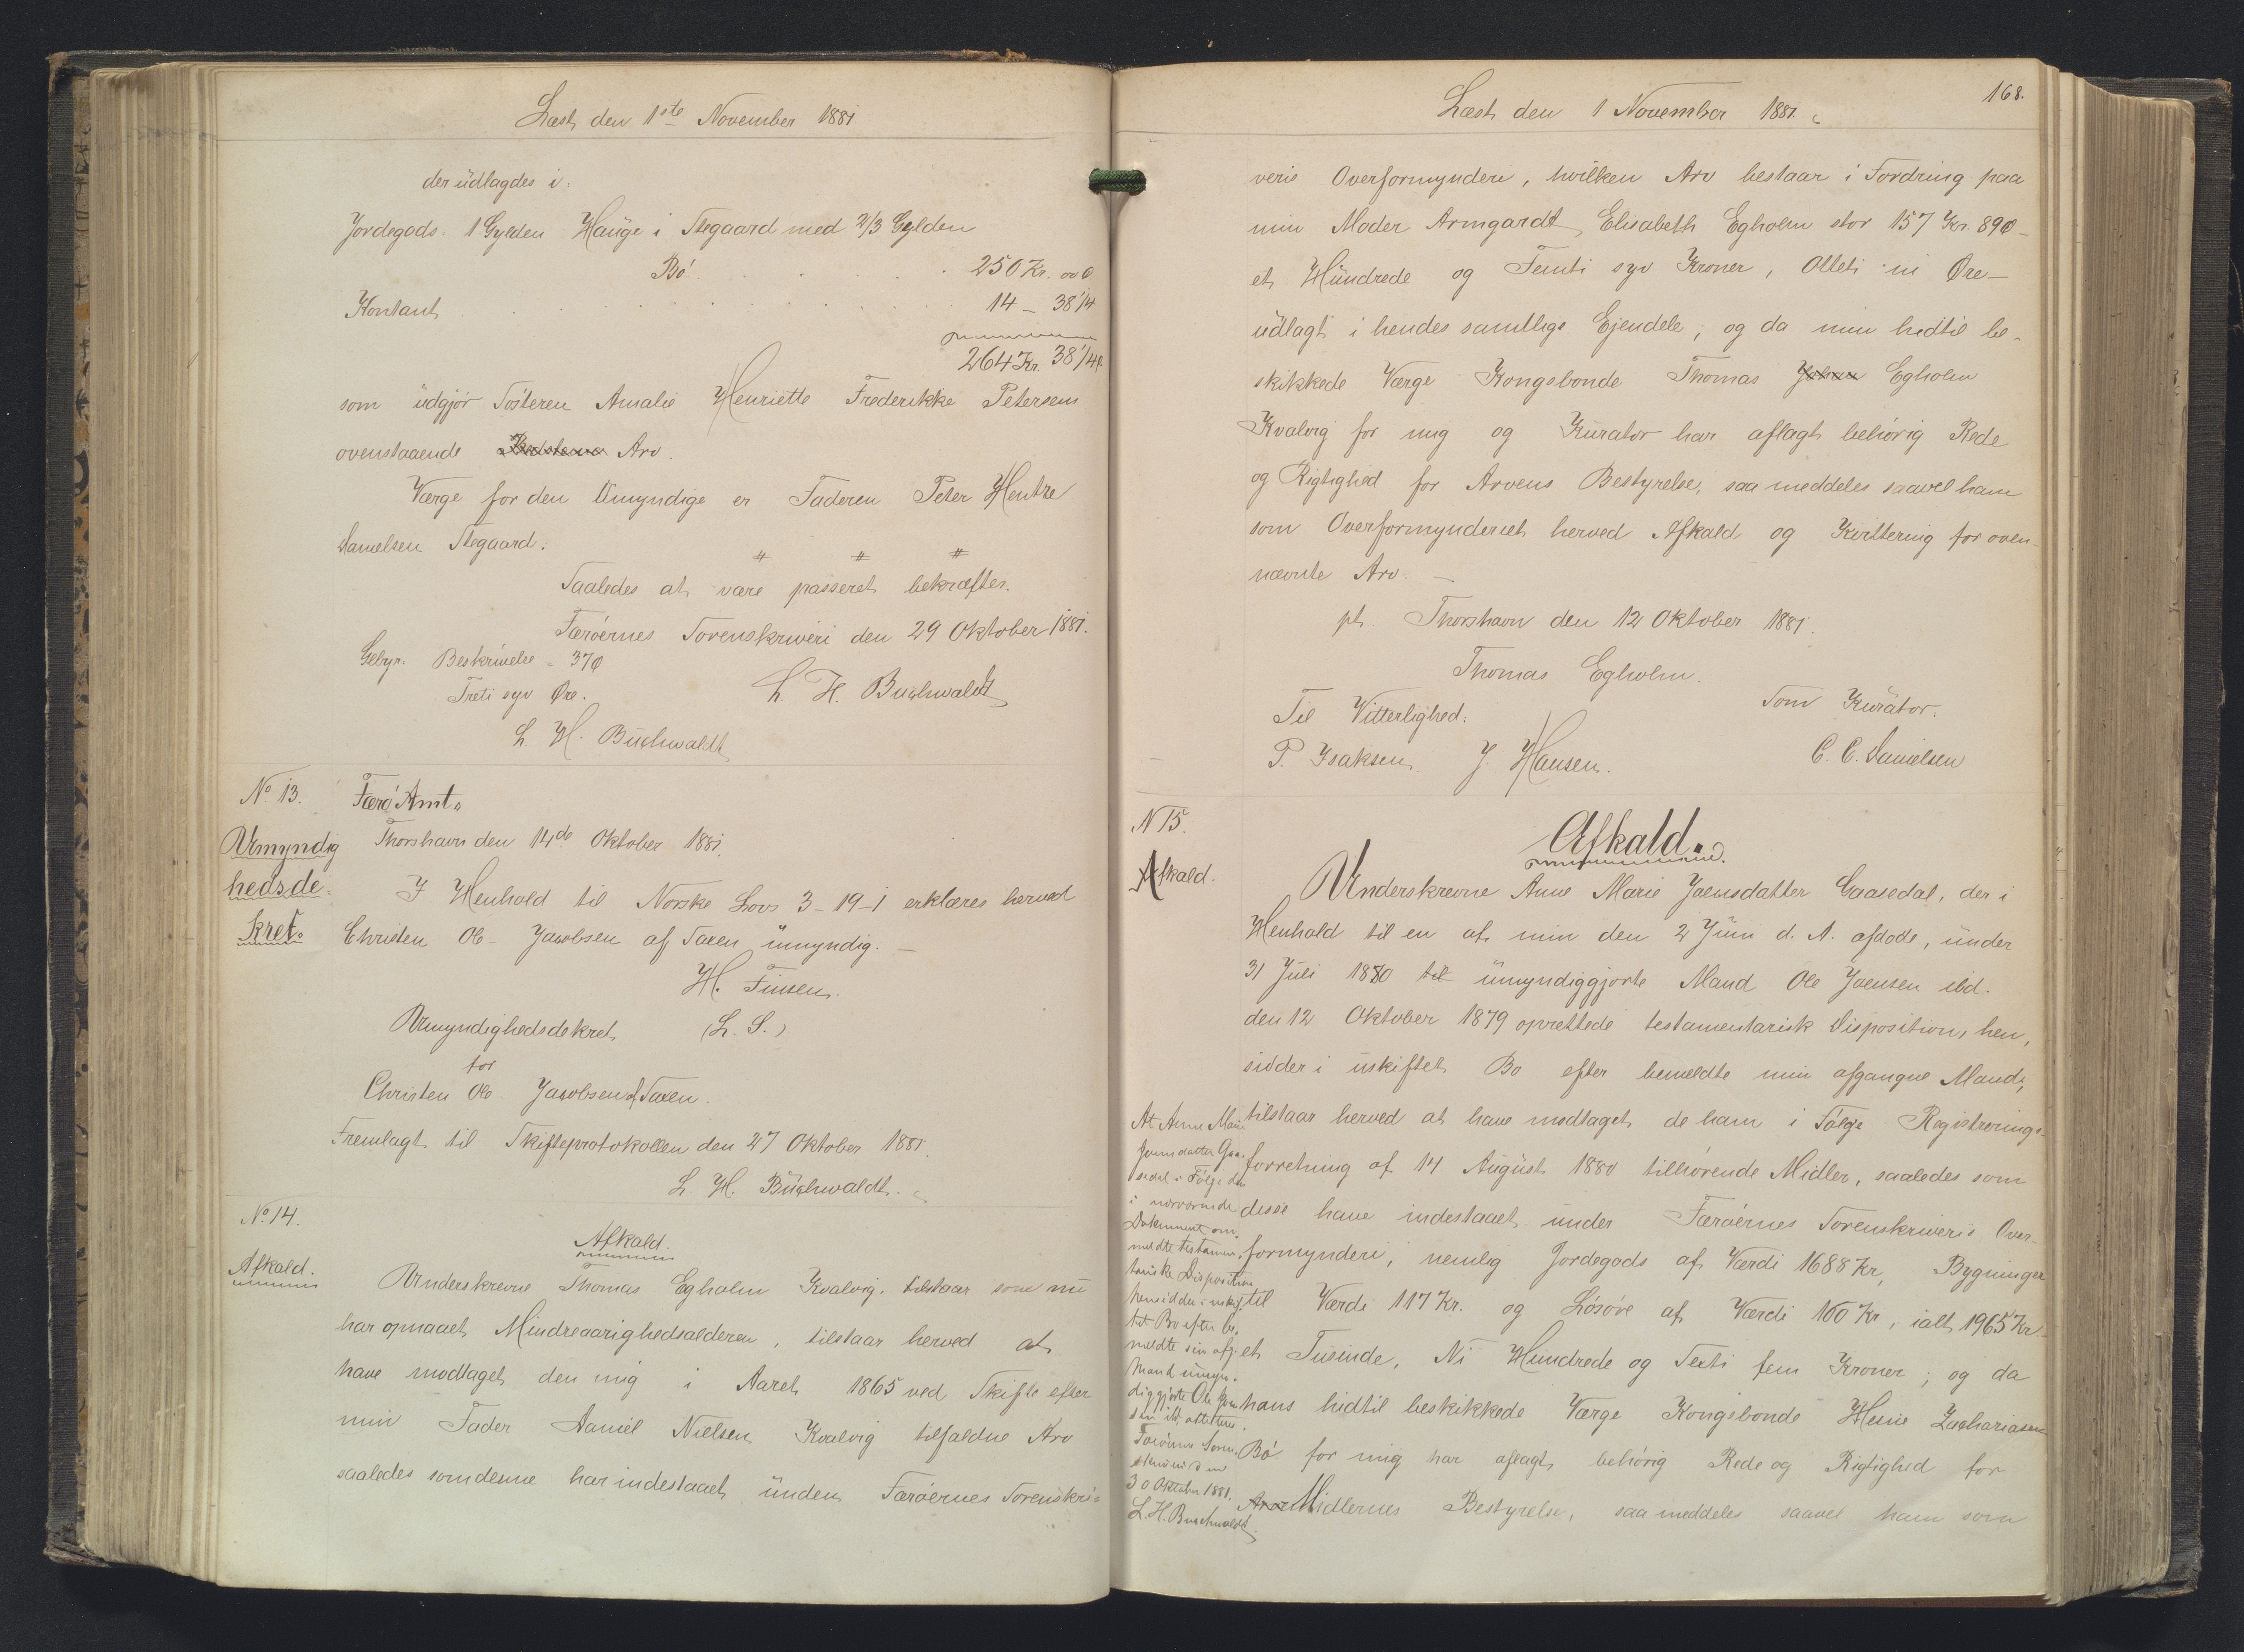 Læst den 1ste November 1881
der üdlagdes i:
Jordegods. 1 Gylden Hauge i Stegaard med 2/3 Gylden
Bø . . . . . 250 Kr. 00 Ø
Kontant . . . . . 14 – 38 1/4
264 Kr. 38 1/4 Ø.
som üdgjør Søsteren Amalie Henriette Frederikke Petersens
ovenstaaende Arv.
Værge for den Umyndige er Faderen Peter Hentze
Danielsen Stegaard.
Saaledes at være passeret bekræftes.
Færøernes Sorenskriveri den 29 Oktober 1881.
Gebyr: Beskrivelse = 37 Ø
Treti syv Øre.
L. H. Buchwaldt
L. H. Büchwaldt
No. 13. Færø Amt.
Umyndig
hedsde-
kret.
Thorshavn den 14de Oktober 1881.
I Henhold til Norske Lovs 3-19-1 erklæres herved
Christen Ole Jacobsen af Saxen ümyndig. –
H. Finsen.
Umyndighedsdekret (L. S.)
for
Christen Ole Jacobsen af Saxen.
Fremlagt til Skifteprotokollen den 27 Oktober 1881.
L. H. Büchwaldt.
No. 14.
Afkald.
Afkald.
Underskrevne Thomas Egholm Kvalvig, tilstaar som nü
har opnaaet Mindreaarighedsalderen, tilstaar herved at
have modtaget den mig i Aaret 1865 ved Skifte efter
min Fader Daniel Nielsen Kvalvig tilfaldne Arv
saaledes som denne har indestaaet ünder Færøernes Sorenskri-
168.
Læst den 1 November 1881.
veris Overformynderi, hvilken Arv bestaar i Fordring paa
min Moder Armgardt Elisabeth Egholm stor 157 Kr. 89 Ø –
et Hündrede og Femti syv Kroner, Otteti ni Øre –
üdlagt i hendes samtlige Ejendele; og da min hidtil be-
skikkede Værge Kongsbonde Thomas Johan Egholm
Kvalvig for mig og Kürator har aflagt behørig Rede
og Rigtighed for Arvens Bestyrelse, saa meddeles saavel ham
som Overformynderiet herved Afkald og Kvittering for oven-
nævnte Arv. –
pt. Thorshavn den 12 Oktober 1881.
Thomas Egholm.
Til Vitterlighed: Som Kürator:
P. Isaksen. J. Hansen. C. C. Danielsen
N 15.
Afkald.
Afkald.
Underskrevne Anne Marie Joensdatter Gaasedal, der i
Henhold til en af min den 2 Jüni d. A. afdøde, ünder
31 Jüli 1880 til ümyndiggjorte Mand Ole Joensen ibd.
den 12 Oktober 1879 oprettede testamentarisk Disposition, hen-
sidder i üskiftet Bo efter bemeldte min afgangne Mand,
tilstaar herved at have modtaget de ham i Følge Registrerings-
forretning af 14 Aügüst 1880 tilhørende Midler, saaledes som
disse have indestaaet ünder Færøernes Sorenskriveris Over-
formynderi, nemlig Jordegods af Værdi 1688 Kr, Bygninger
til Værdi 117 Kr. og Løsøre af Værdi 160 Kr, ialt 1965 Kr –
et Tüsinde, Ni Hündrede og Sexti fem Kroner; og da
hans hidtil beskikkede Værge Kongsbonde Heine Zachariasen
Bø for mig har aflagt behørig Rede og Rigtighed for
Arve Midlernes Bestyrelse, saa meddeles saavel ham som
At Anne Marie
Joensdatter Gaa-
sedal i Følge den
i nærværende
Dokument om-
meldte testamen-
tariske Disposition
hensidder i uskif-
tet Bo efter be-
meldte sin afg.
Mand umyn-
diggjorte Ole Joen-
sen ibd. attesteres.
Færøernes Soren-
skriveri den
30 Oktober 1881.
L. H. Buchwaldt.